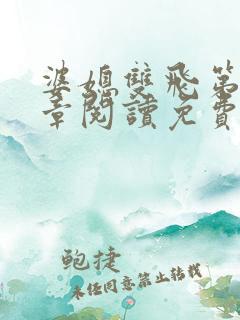 婆媳雙飛第
章閱讀免費
鲍捷
未经同意禁止转载